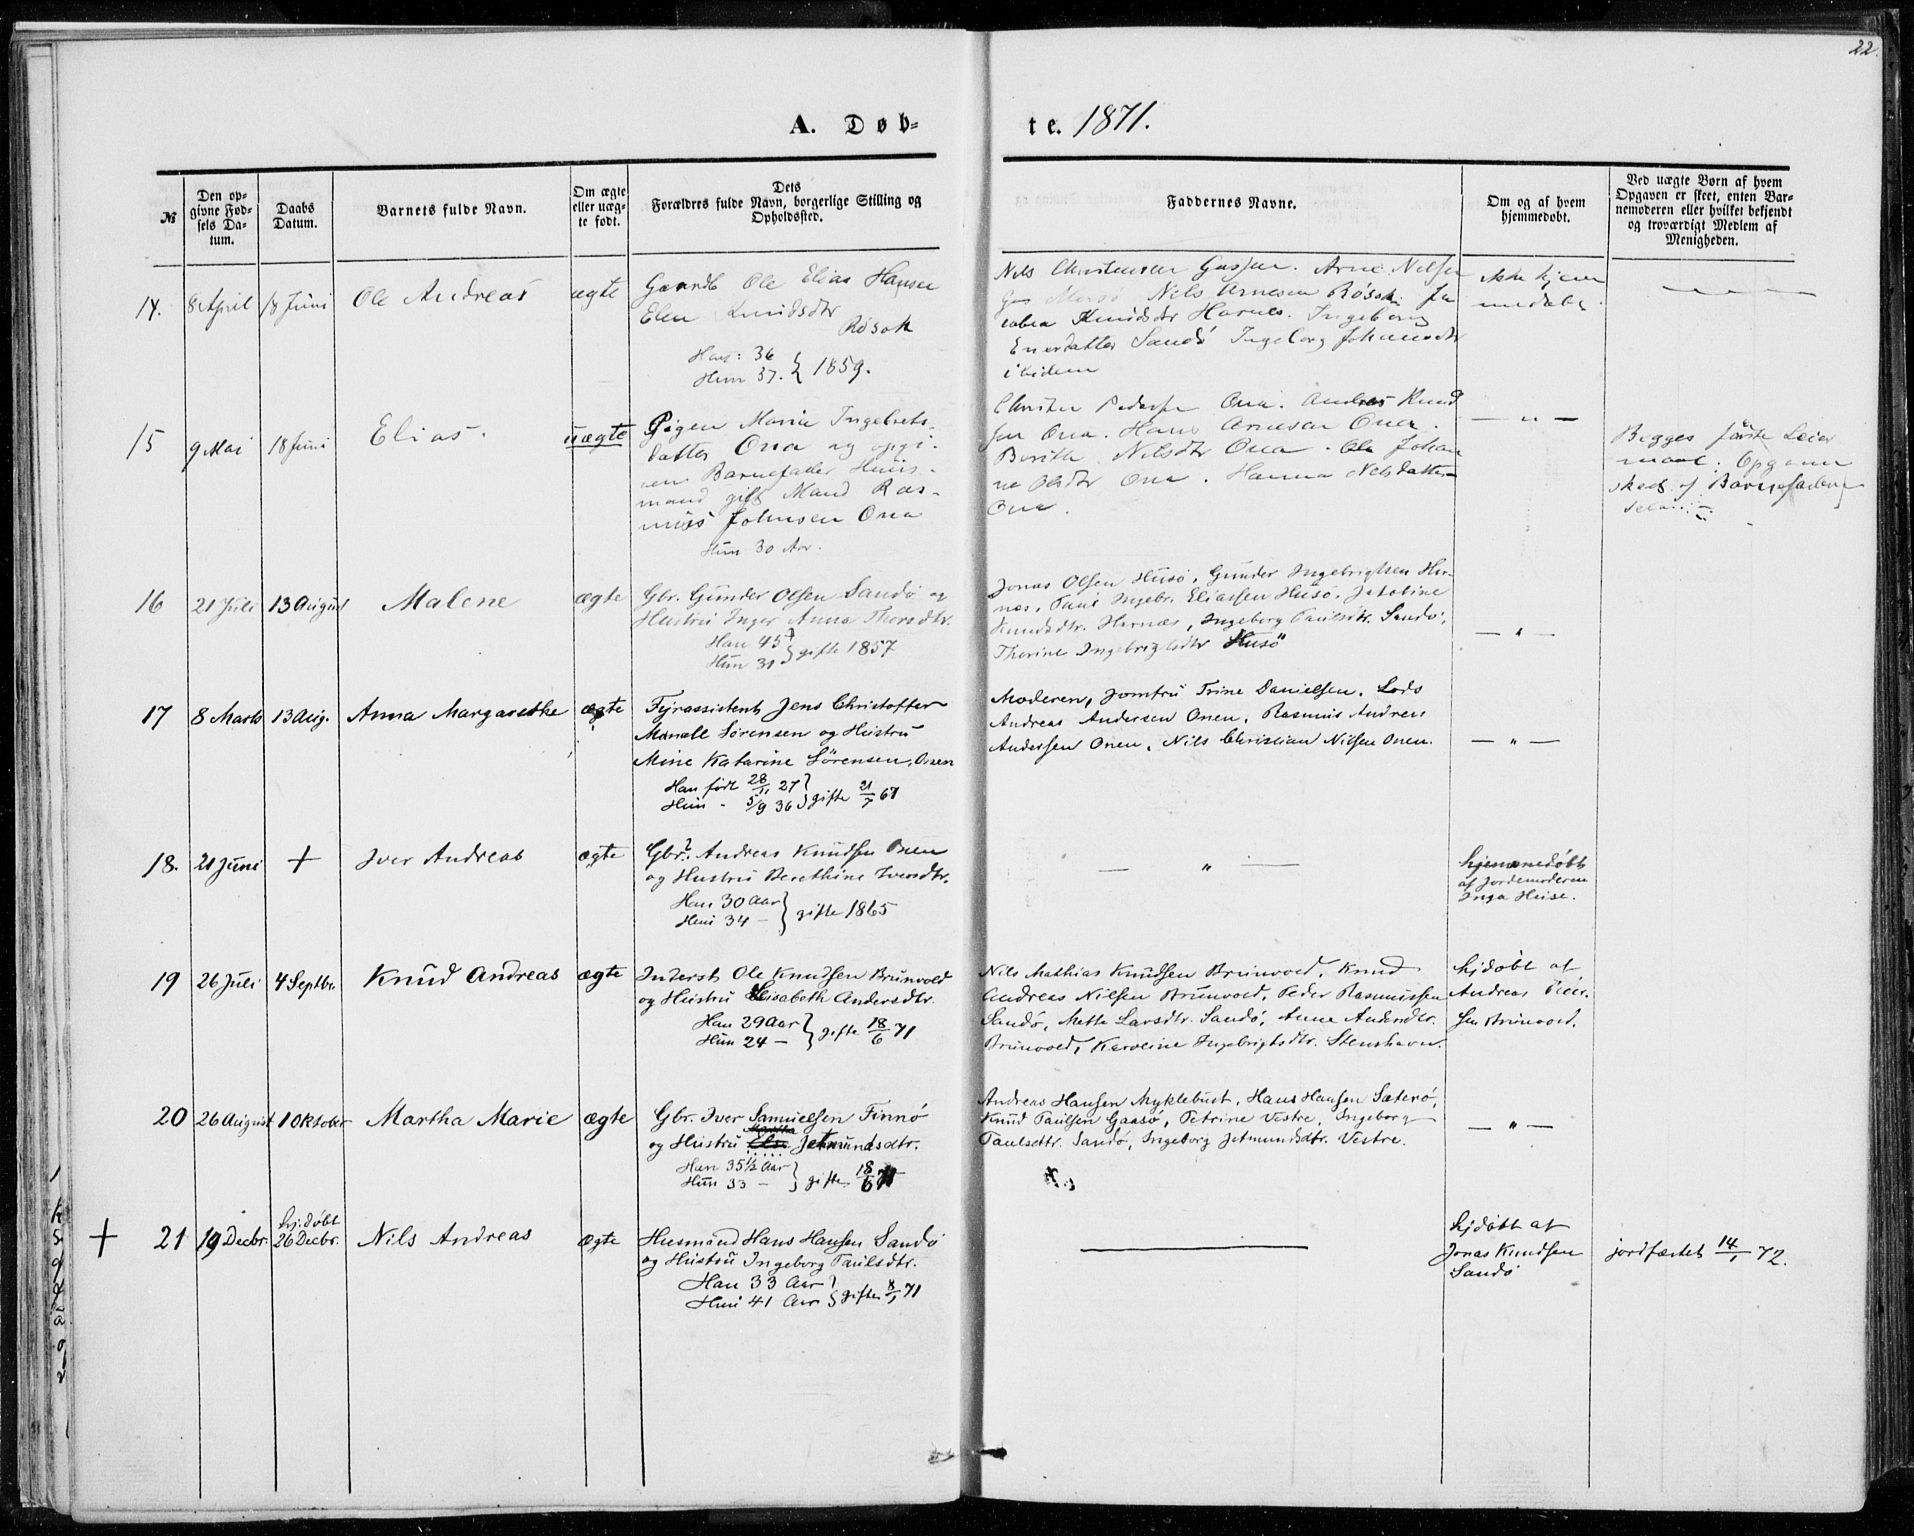 22.
A. Døb-
te. 1871.
№
Den op-
givne Fød-
sels Da-
tum.
Daabs
Datum.
Barnets fulde Navn.
Om ægte
eller uæg-
te født.
Dets
Forældres fulde Navn, borgerlige Stilling og
Opholdssted.
Faddernes Navne.
Om og af hvem
hjemmedøbt.
Ved uægte Børn af hvem
Opgaven er skeet, enten Bar-
nemoderen eller hvilket bekjendt
og troværdigt Medlem af
Menigheden.
14. 8 April 18 Juni Ole Andreas ægte
Ole Elias Hansen
Elen Knudsdtr
Røsok
Han: 36
Hun 37. } 1859.
Nils Christensen Arne Nilsen
Nils Arnesen Røsok. Ja
cobea Knudsdtr Harnes. Ingeborg
Enersdatter Sandø Ingeborg Johansdtr
ibidem
ikke hjem
medøbt
15 9 Mai 18 Juni Elias. uægte
Pigen Maria Ingebrets-
datter Ona og opgi-
ven Barnefader Huus-
mand gift Mand Ras-
mus Johnsen Ona
Hun 30 Aar.
Christen Pedersen Ona. Andreas Knud
sen Ona. Hans Arnesen Ona.
Berithe Nilsdtr Ona. Johan
ne Olsdtr Ona. Hanna Nilsdatter
Ona.
— " —
Begges første Leier
maal: Opgaven
skeet af Barnefaderen
selv.
16 21 Juli 13 August Malene ægte
Gbr. Gunder Olsen Sandø og
Hustru Inger Anna Thorsdtr.
Han 45
Hun 31 } gifte 1857
Jonas Olsen Husø, Gunder Ingebrigtsen Har-
nes, Paul Ingebr. Eliassen Husø, Jakobine
Knudsdtr. Harnæs, Ingeborg Paulsdtr. Sandø,
Thorine Ingebrigtsdtr Husø
— " —
17 8 Marts 13 Aug. Anna Margarethe ægte
Fyrassistent Jens Christoffer
Sørensen og Hustru
Mine Katarine Sørensen, Onen
Han født 28/11 27
Hun - 5/9 36 } gifte 21/7 67
Moderen, Jomfru Trine Danielsen. Lods
Andreas Andersen Onen, Rasmus Andreas
Andersen Onen, Nils Christian Nilsen Onen.
— " —
18. 21 Juni + Iver Andreas ægte
Gbr. Andreas Knudsen Onen
og Hustru Berethine Iversdtr.
Han 30 Aar
Hun 34 — } gifte 1865
— " —
hjemmedøbt
af Jordemoderen
Inga Huse.
19 26 Juli 4 Septbr. Knud Andreas ægte
Inderst Ole Knudsen Brunvold
og Hustru Elisabeth Andersdtr.
Han 29 Aar
Hun 24 — } gifte 18/6 71
Nils Mathias Knudsen Brunvold, Knud
Andreas Nilsen Brunvold, Peder Rasmussen
Sandø, Mette Larsdtr. Sandø, Anne Andersdtr.
Brunvold, Karoline Ingebrigtsdtr. Stenshavn.
hjdøbt af
Andreas
sen Brunvold.
20 26 August 1 Oktober Martha Marie ægte
Gbr. Iver Samuelsen Finnø
Martha
og Hustru Else Jetmundsdtr.
Han 35 ½ Aar
Hun 33 — } gifte 18/6
Andreas Hansen Myklebust, Hans Hansen Sæterø,
Knud Paulsen Gaasø, Petrine Vestre, Ingeborg
Paulsdtr. Sandø, Ingeborg Jetmundsdtr. Vestre.
— " —
+ 21 19 Decbr. hj.døbt
26 Decbr. Nils Andreas ægte
Husmand Hans Hansen Sandø
og Hustru Ingeborg Paulsdtr.
Han 33 Aar
Hun 41 Aar } gifte 8/1 71
hjdøbt af
Jonas Knudsen
Sandø
jordfæstet 14/1 72.